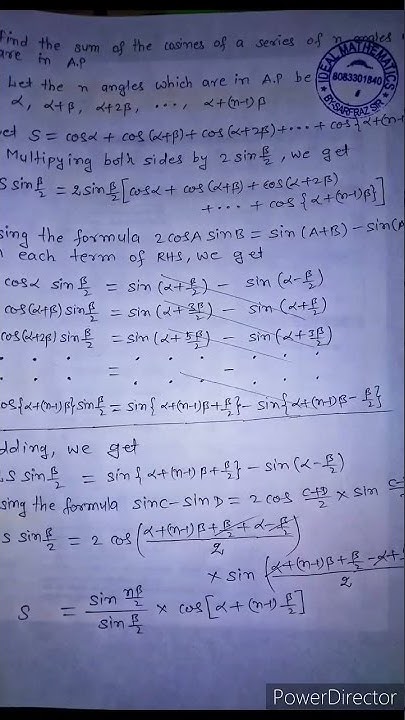 Find the sum of the cosines of a series of n angles
are in A.P
IDEAL MATHEMATICS
6083301840
BY:SARFRAZ SIR
Let the n angles which are in A.P be
α, α+β, α+2β, ..., α+(n-1)β
let S = cosα + cos(α+β)+cos(α+2β)+...+ cos{α+(n-1)
Multipying both sides by 2 sin β/2, we get
S sin β/2 = 2 sin β/2 [cosα + cos(α+β) + cos(α+2β)
+ ... + cos{α+(n-1)β}]
sing the formula 2cosA sinB = sin(A+B) - sin(A
n each term of RHS, we get
cosα sin β/2 = sin(α+β/2) - sin(α-β/2)
cos(α+β) sin β/2 = sin(α+3β/2) - sin(α+β/2)
cos(α+2β) sin β/2 = sin(α+5β/2) - sin(α+3β/2)
. . . = . - . .
cos{α+(n-1)β} sin β/2 = sin{α+(n-1)β+β/2} - sin{α+(n-1)β-β/2}
dding, we get
2.S sin β/2 = sin{α+(n-1)β+β/2} - sin(α-β/2)
sing the formula sinC - sinD = 2 cos C+D/2 × sin C-
s sin β/2 = 2 cos(α+(n-1)β+β/2+α-β/2 / 2)
× sin (α+(n-1)β+β/2-α+ / 2
S = sin nβ/2 / sin β/2 × cos[α+(n-1)β/2]
PowerDirector